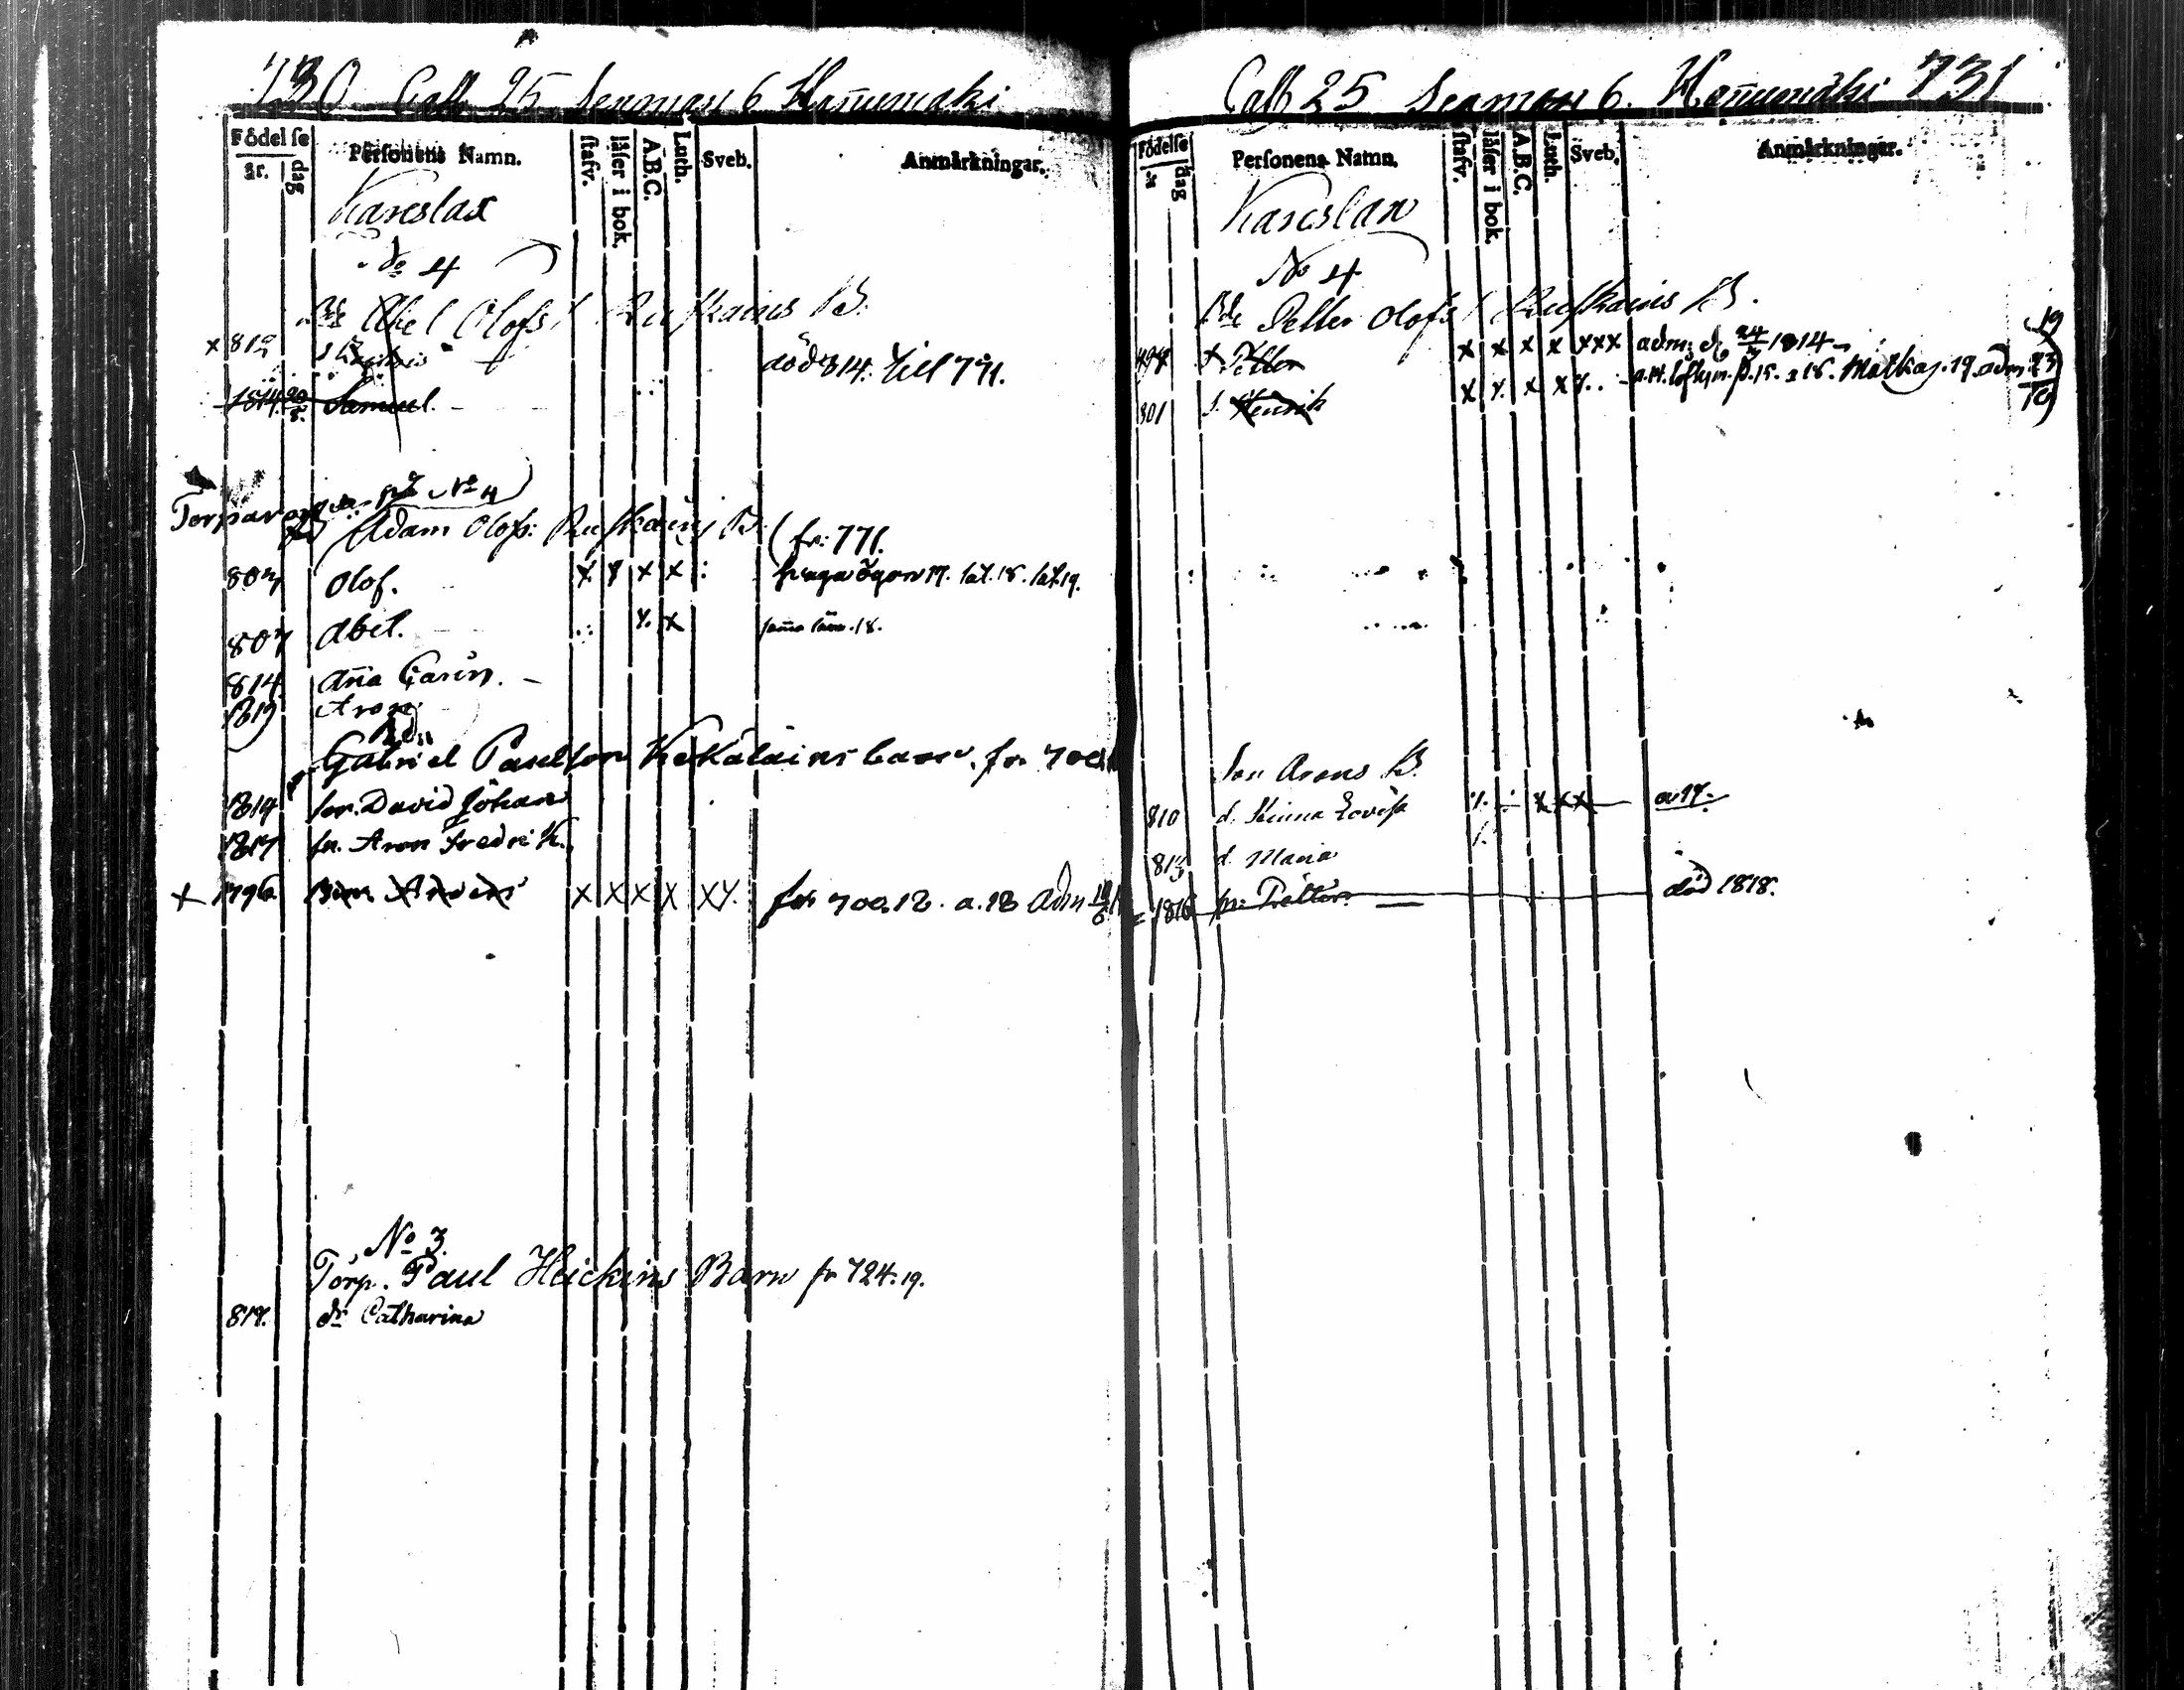 730 Catt 25 Seaman 6 Hañumäki
Födelse
år. dag
Personens Namn.
stafv.
läser i bok.
A.B.C.
Luth.
Sveb.
Anmärkningar.
Kareslax
No 4
Abel Olofs: Ruuskains B.
x 812
död 814. till 771.
1814 20/5 Samuel.
Torpare på No 4
Adam Olofs: Ruuskains B. fr: 771.
803 Olof. x x x x svaga ögon 17. 18. 19.
807 Abel. x x 18.
814. Aña Carin.
1819 Aron
Gabriel Paulsson Kekäläins barn. fr 700
1814 son. David Johan
1817 sn. Aron Fredrik.
x 1796 Anders x x x x x x fr 700.18. a.18 Adm
No 3.
Torp. Paul Heickins Barn fr 724.19.
817. dr Catharina
Catt 25 Seaman 6. Hañumäki 731
Födelse
år dag
Personens Namn.
stafv.
läser i bok.
A.B.C.
Luth.
Sveb.
Anmärkningar.
Kareslax
No 4
Petter Olofs: Ruuskains B.
797 Petter x x x x xxx adm: d. 24/3 1814
801 s. Henrik x x x x x 15. 18. 19. adm. 23
Son Arons B.
810 d. Stinna Lovisa x x x a 17.
813 d. Maria
1816 sn: Petter död 1818.